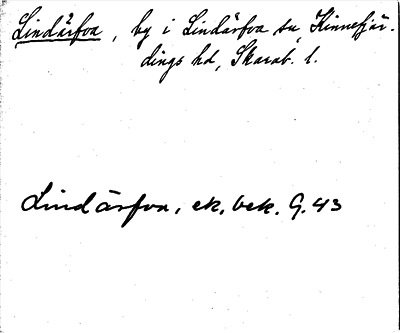 Lindärfva, by i Lindärfva sn, Kinnefjär-
dings hd, Skarab. l.
Lindärfva, ek. bek. G. 43